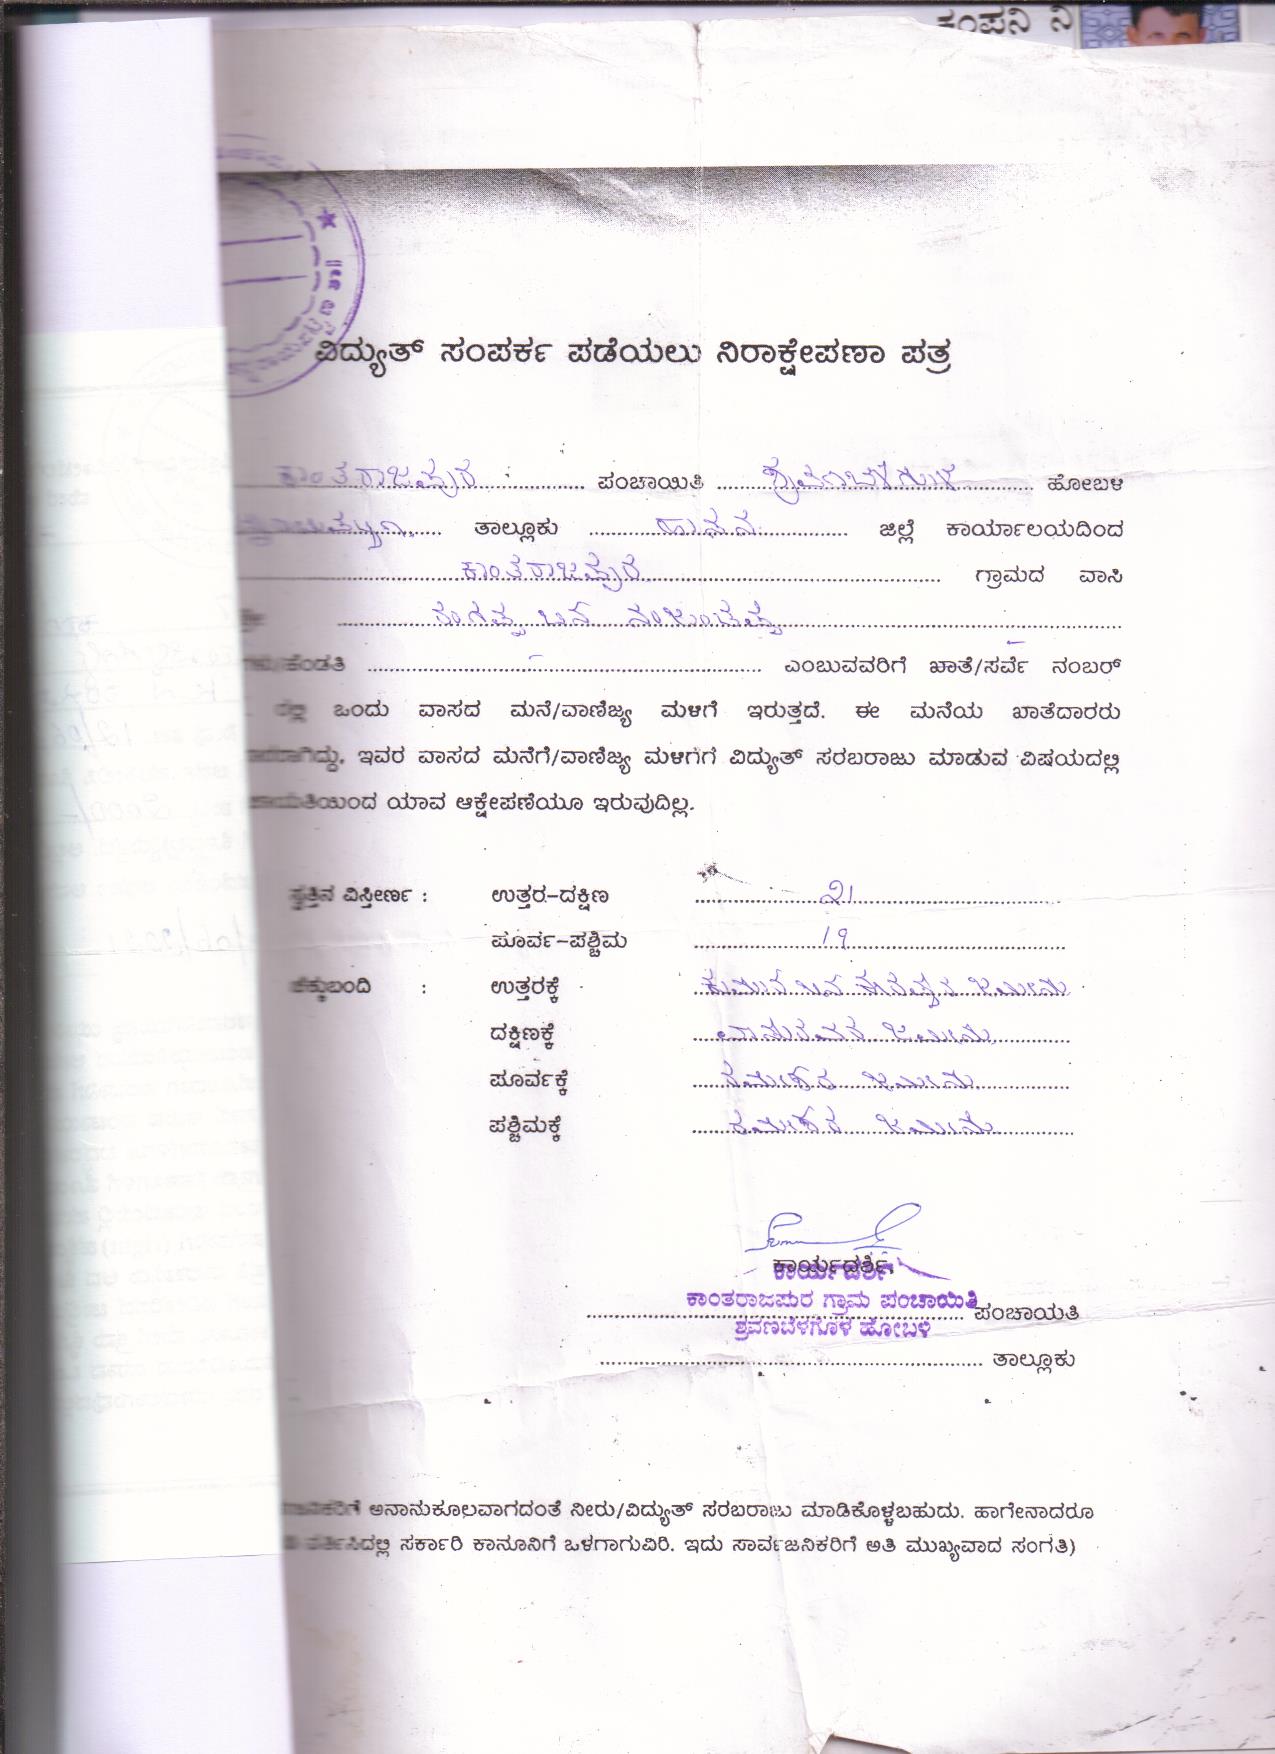 ಕಂಪನಿ ನಿ
ವಿದ್ಯುತ್ ಸಂಪರ್ಕ ಪಡೆಯಲು ನಿರಾಕ್ಷೇಪಣಾ ಪತ್ರ
ಕಾಂತರಾಜಪುರ ಪಂಚಾಯಿತಿ ಶ್ರವಣಬೆಳಗೊಳ ಹೋಬಳಿ
ತಾಲ್ಲೂಕು ಹಾಸನ ಜಿಲ್ಲೆ ಕಾರ್ಯಾಲಯದಿಂದ
ಕಾಂತರಾಜಪುರ ಗ್ರಾಮದ ವಾಸಿ
ರಂಗಪ್ಪ ಬಿನ್ ನಂಜುಂಡಪ್ಪ
ಹೆಂಡತಿ ಎಂಬುವವರಿಗೆ ಖಾತೆ/ಸರ್ವೆ ನಂಬರ್
ರಲ್ಲಿ ಒಂದು ವಾಸದ ಮನೆ/ವಾಣಿಜ್ಯ ಮಳಿಗೆ ಇರುತ್ತದೆ. ಈ ಮನೆಯ ಖಾತೆದಾರರು
ಇವರ ವಾಸದ ಮನೆಗೆ/ವಾಣಿಜ್ಯ ಮಳಿಗೆಗೆ ವಿದ್ಯುತ್ ಸರಬರಾಜು ಮಾಡುವ ವಿಷಯದಲ್ಲಿ
ಯಾವ ಆಕ್ಷೇಪಣೆಯೂ ಇರುವುದಿಲ್ಲ.
ಸ್ವತ್ತಿನ ವಿಸ್ತೀರ್ಣ : ಉತ್ತರ-ದಕ್ಷಿಣ 21
ಪೂರ್ವ-ಪಶ್ಚಿಮ 19
ಚೆಕ್ಕುಬಂದಿ : ಉತ್ತರಕ್ಕೆ ಜಮೀನು
ದಕ್ಷಿಣಕ್ಕೆ ಜಮೀನು
ಪೂರ್ವಕ್ಕೆ ರಮೇಶರ ಜಮೀನು
ಪಶ್ಚಿಮಕ್ಕೆ ರಮೇಶರ ಜಮೀನು
ಕಾರ್ಯದರ್ಶಿ,
ಕಾರ್ಯದರ್ಶಿ
ಕಾಂತರಾಜಪುರ ಗ್ರಾಮ ಪಂಚಾಯಿತಿ ಪಂಚಾಯತಿ
ಶ್ರವಣಬೆಳಗೊಳ ಹೋಬಳಿ
ತಾಲ್ಲೂಕು
ಅನಾನುಕೂಲವಾಗದಂತೆ ನೀರು/ವಿದ್ಯುತ್ ಸರಬರಾಜು ಮಾಡಿಕೊಳ್ಳಬಹುದು. ಹಾಗೇನಾದರೂ
ಸರ್ಕಾರಿ ಕಾನೂನಿಗೆ ಒಳಗಾಗುವಿರಿ. ಇದು ಸಾರ್ವಜನಿಕರಿಗೆ ಅತಿ ಮುಖ್ಯವಾದ ಸಂಗತಿ)